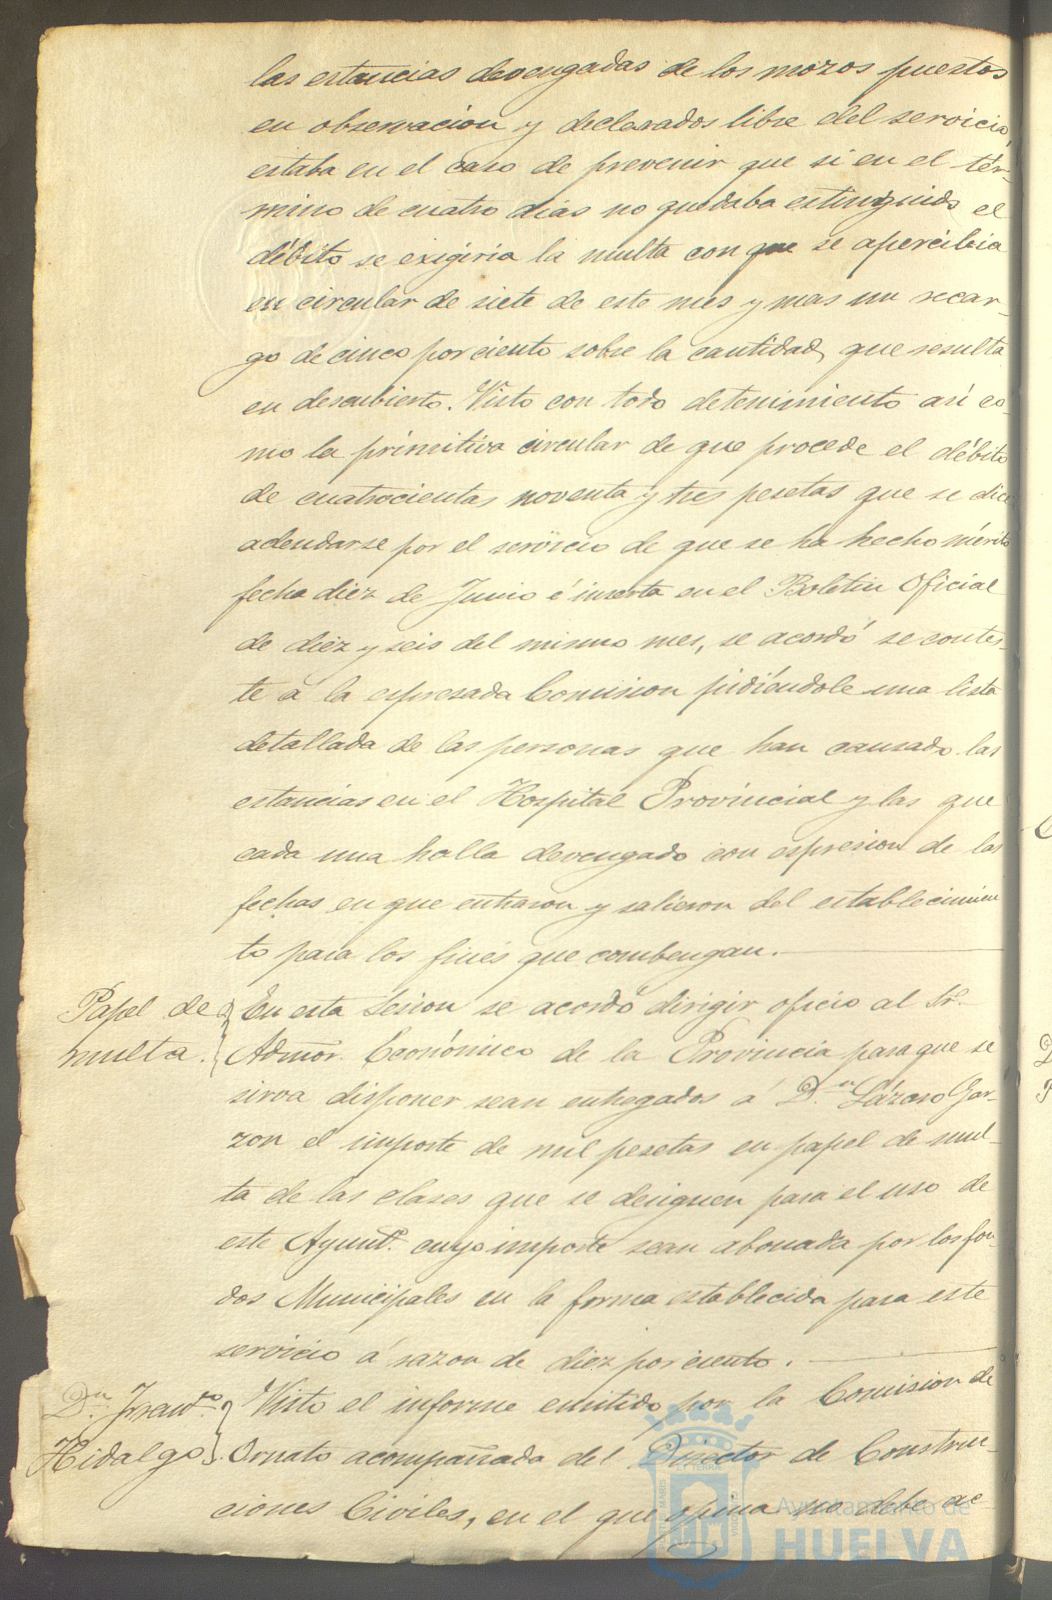 las estancias devengadas de los mozos puestos
en observacion y declarados libre del servicio,
estaba en el caso de prevenir que si en el tér-
mino de cuatro dias no quedaba estinguido el
débito se exigiria la multa con que se apercibia
en circular de siete de este mes y mas un recar-
go de cinco por ciento sobre la cantidad que resulta
en descubierto. Visto con todo detenimiento así co-
mo la primitiva circular de que procede el débito
de cuatrocientas noventa y tres pesetas que se dice
adeudarse por el servicio de que se ha hecho mérito
fecha diez de Junio é inserta en el Boletin Oficial
de diez y seis del mismo mes, se acordó se contes-
te á la espresada Comision pidiéndole una lista
detallada de las personas que han causado las
estancias en el Hospital Provincial y las que
cada una halla devengado con espresion de las
fechas en que entraron y salieron del establecimien
to para los fines que combengan.
Papel de multa.
En esta sesion se acordó dirigir oficio al Sr.
Admor. Económico de la Provincia para que se
sirva disponer sean entregados á D.n Lázaro Gar-
zon el importe de mil pesetas en papel de mul-
ta de las clases que se designen para el uso de
este Ayunt.o cuyo importe sean abonada por los fon-
dos Municipales en la forma establecida para este
servicio á razon de diez por ciento.
D.n Fran.co Hidalgo
Visto el informe emitido por la Comision de
Ornato acompañada del Director de Construc-
ciones Civiles, en el que opina no debe ac
Ayuntamiento de
HUELVA